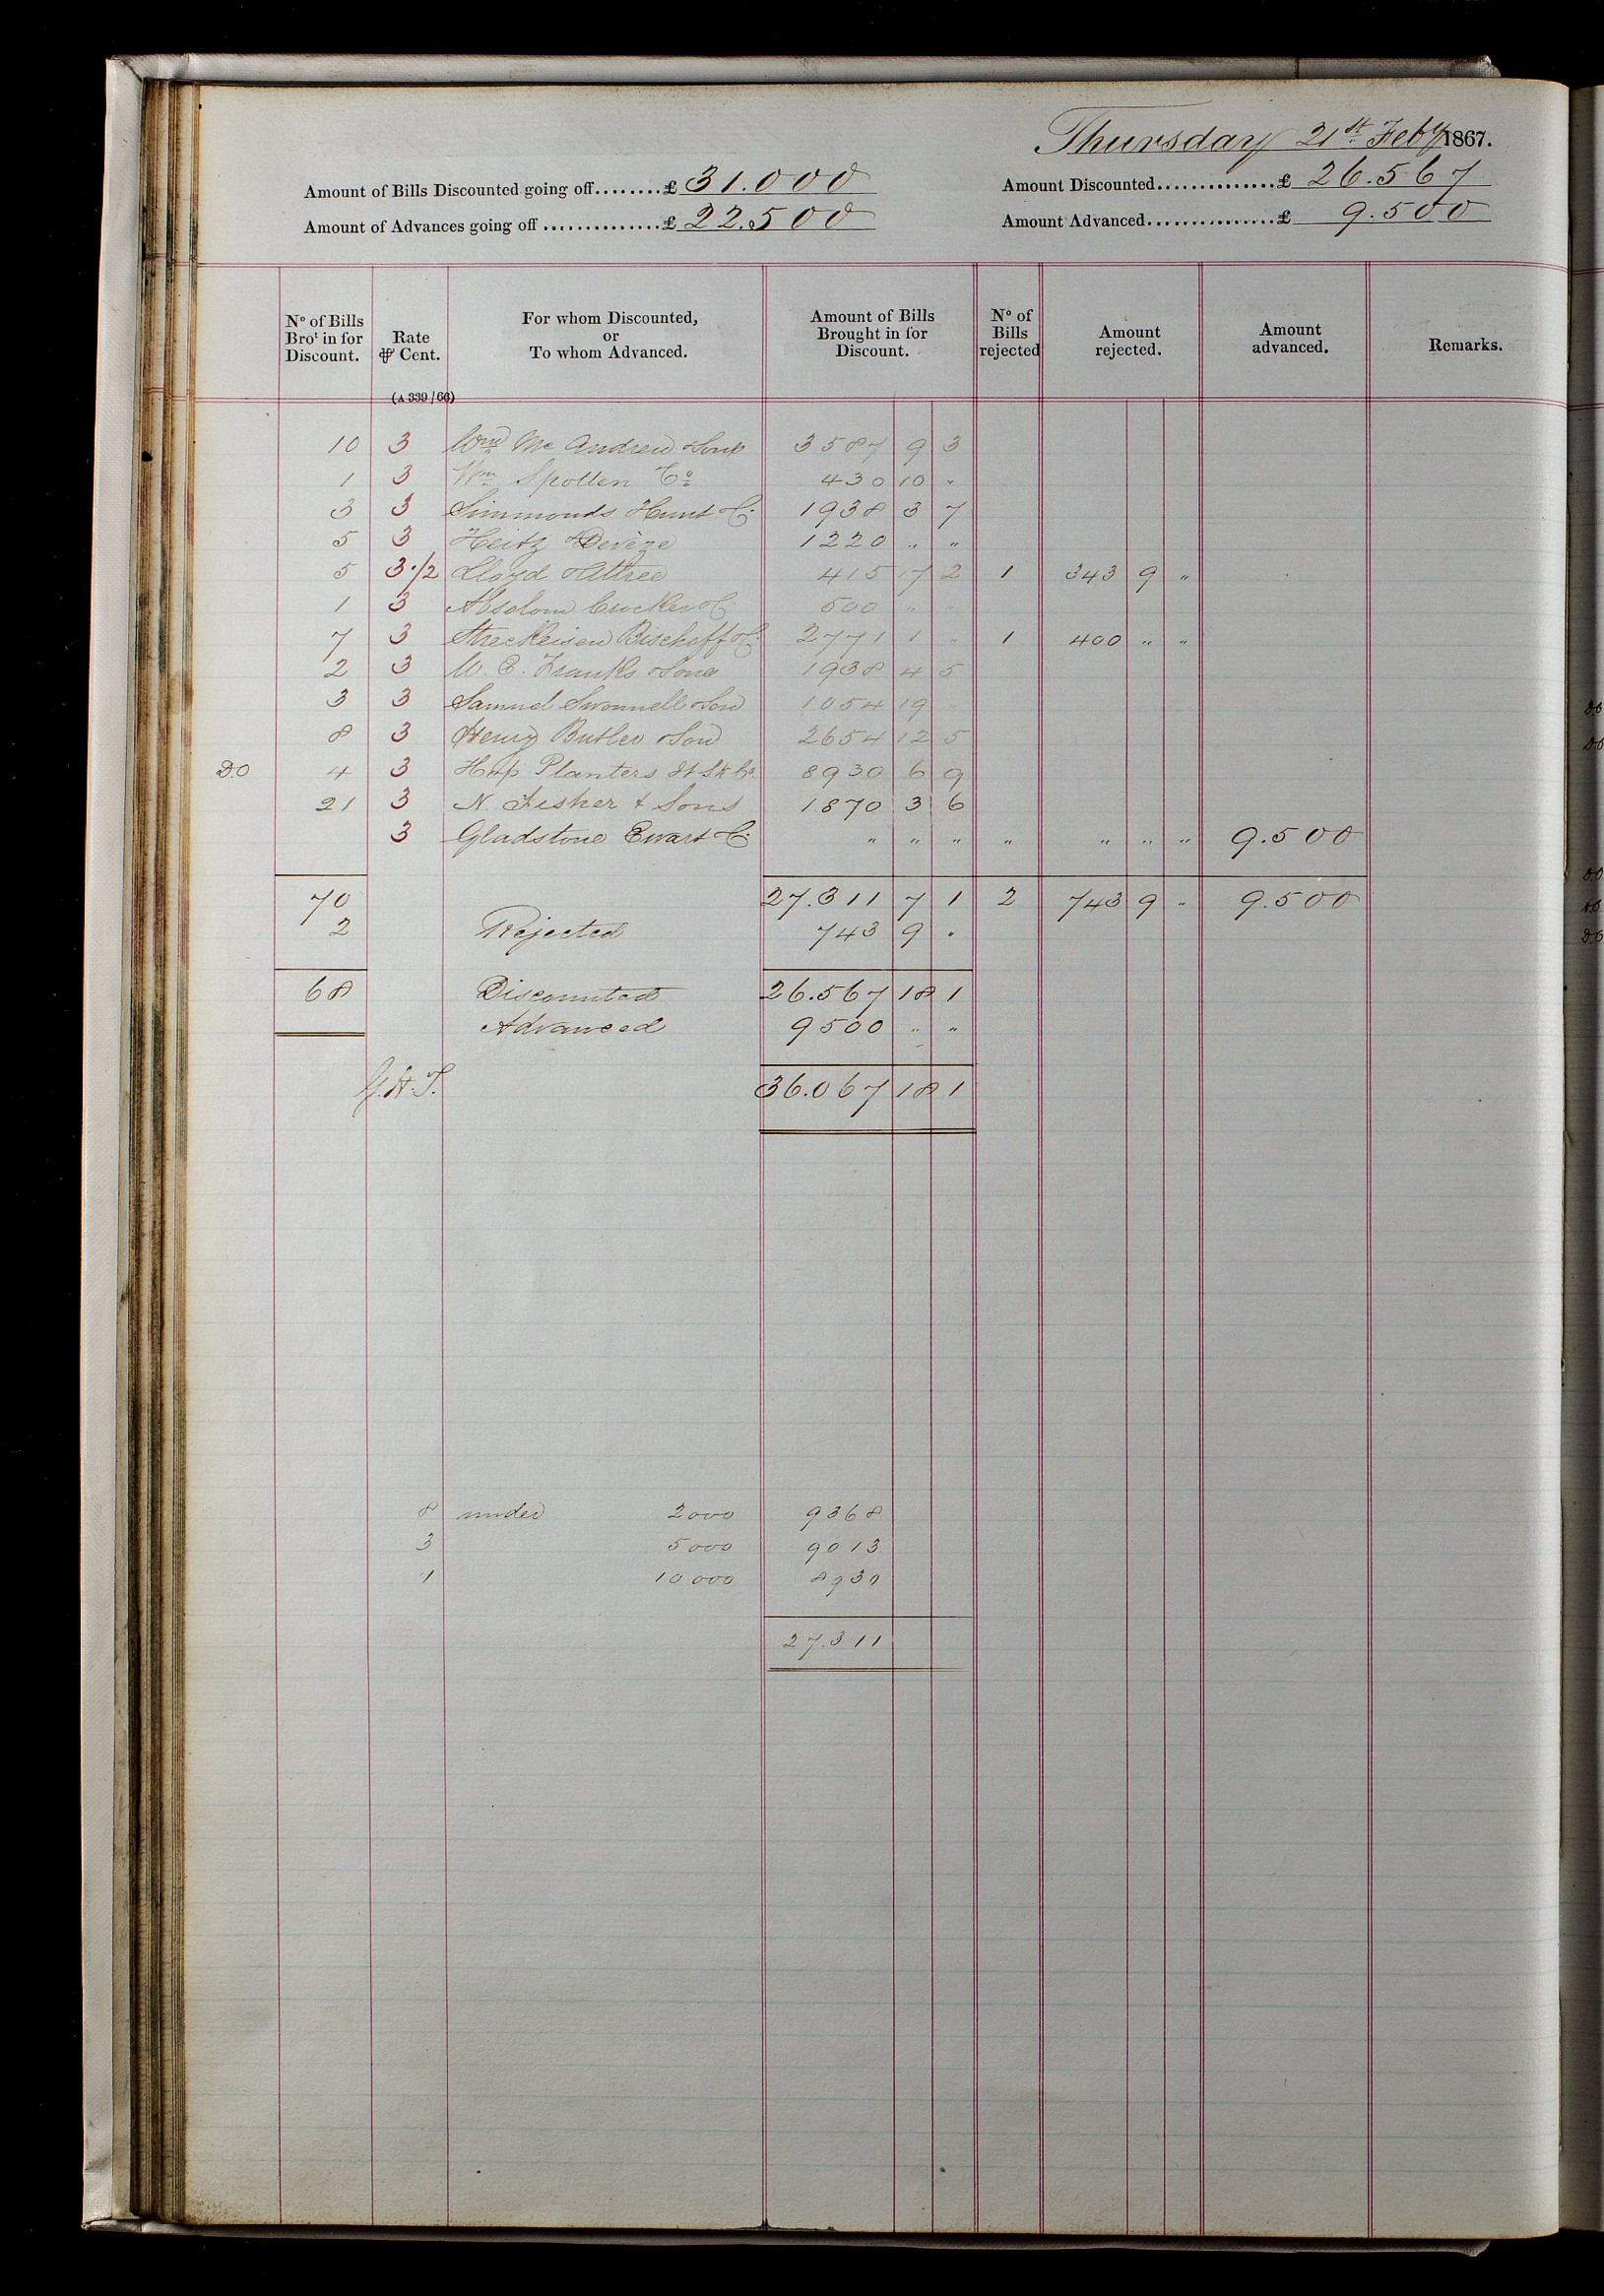 Thursday 21st Feby 1867.
Amount of Bills Discounted going off........£ 31.000 Amount Discounted...............£ 26.567
Amount of Advances going off ..............£ 22.500 Amount Advanced................£ 9.500
No of Bills Brot in for Discount. Rate ⅌ Cent. For whom Discounted, or To whom Advanced. Amount of Bills Brought in for Discount. No of Bills rejected Amount rejected. Amount advanced. Remarks.
(A 339/66)
10 3 Wm Mc Andrew & Sons 3587 9 3
1 3 Wm Spotten Co 430 10 "
3 3 Simmonds Hunt & C. 1938 3 7
5 3 Heitz & Devèze 1220 " "
5 3·1/2 Lloyd & Attree 415 17 2 1 343 9 "
1 3 Absolom Crocker & C. 500 " "
7 3 Streckeisen Bischoff & C. 2771 1 " 1 400 " "
2 3 W. E. Franks & Sons 1938 4 5
3 3 Samuel Swonnell & Son 1054 19 "
8 3 Henry Butler & Son 2654 12 5
D.O 4 3 Hop Planters Jt Sk Co 8930 6 9
21 3 N. Fisher & Sons 1870 3 6
3 Gladstone Ewart & C. " " " " " " " 9.500
70 27.311 7 1 2 743 9 " 9.500
2 Rejected 743 9 .
68 Discounted 26.567 18 1
Advanced 9500 " "
36.067 18 1
8 under 2000 9368
3 5000 9013
1 10000 8930
27.311